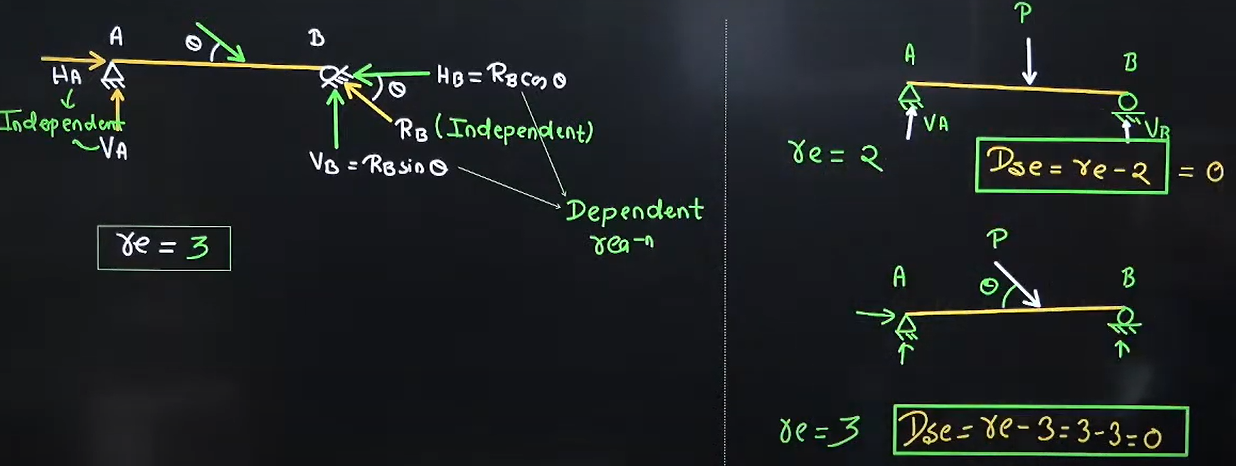 A
θ
B
HA
Independent
VA
θ
HB = RB cos θ
RB (Independent)
VB = RB sin θ
Dependent
rea-n
re = 3
P
A
B
VA
VB
re = 2
Dse = re - 2 = 0
P
A
θ
B
re = 3
Dse = re - 3 = 3 - 3 = 0